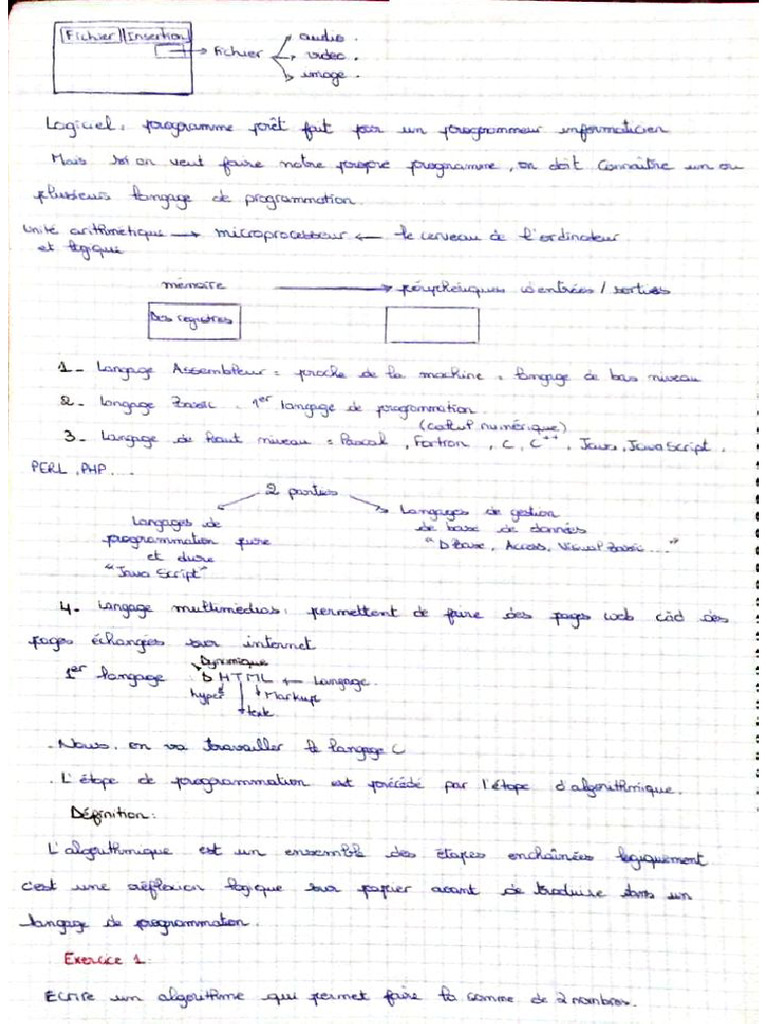 Fichier Insertion
→ Fichier → audio.
→ vidéo.
→ image.
Logiciel : programme prêt fait par un programmeur informaticien
Mais si on veut faire notre propre programme, on doit connaître un ou
plusieurs langage de programmation.
unité arithmétique → microprocesseur ← le cerveau de l'ordinateur
et logique
mémoire → périphériques d'entrées / sorties
Des registres
1 - Langage Assembleur = proche de la machine = langage de bas niveau
2 - Langage Basic . 1er langage de programmation.
(calcul numérique)
3 - Langage de haut niveau = Pascal , Fortron , C , C++ , Java , Java Script .
PERL , PHP ...
2 parties
Langages de
programmation pure
et dure
"Java Script"
Langages de gestion
de base de données
"D Base, Access, Visual Basic ..."
4. Langage multimédias : permettent de faire des pages web càd des
pages échangées sur internet
Dynamique
1er langage : D H T M L ← Langage.
hyper Markup
texte.
. Nous, on va travailler le langage C
. L'étape de programmation est précédé par l'étape d'algorithmique.
Définition :
L'algorithmique est un ensemble des étapes enchaînées logiquement
c'est une réflexion logique sur papier avant de traduire dans un
langage de programmation.
Exercice 1.
Ecrire un algorithme qui permet faire la somme de 2 nombres.